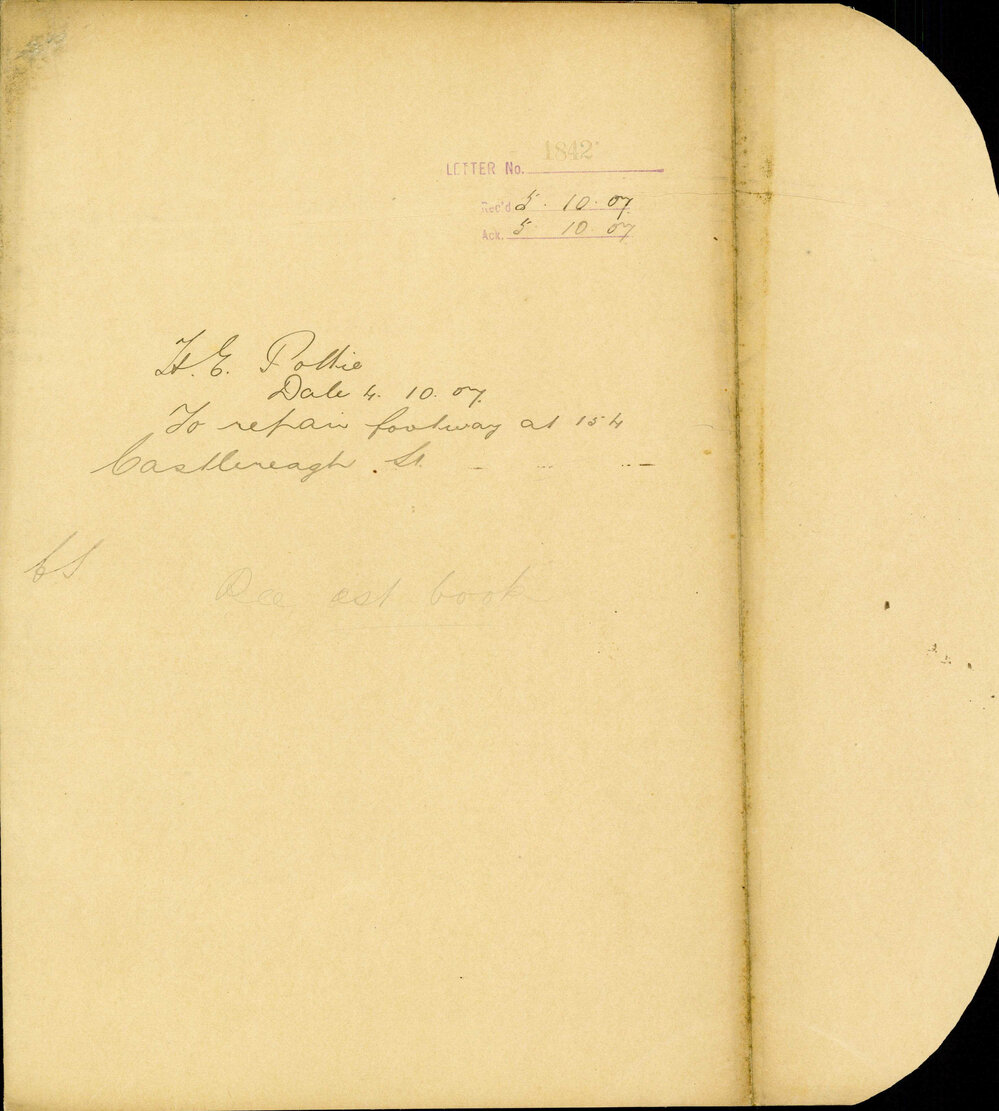 1842
LETTER No.
Rec'd 5. 10. 07.
Ack. 5 10. 07
H. E. Pottie
Date 4. 10. 07.
To repair footway at 154
Castlereagh St.
est book